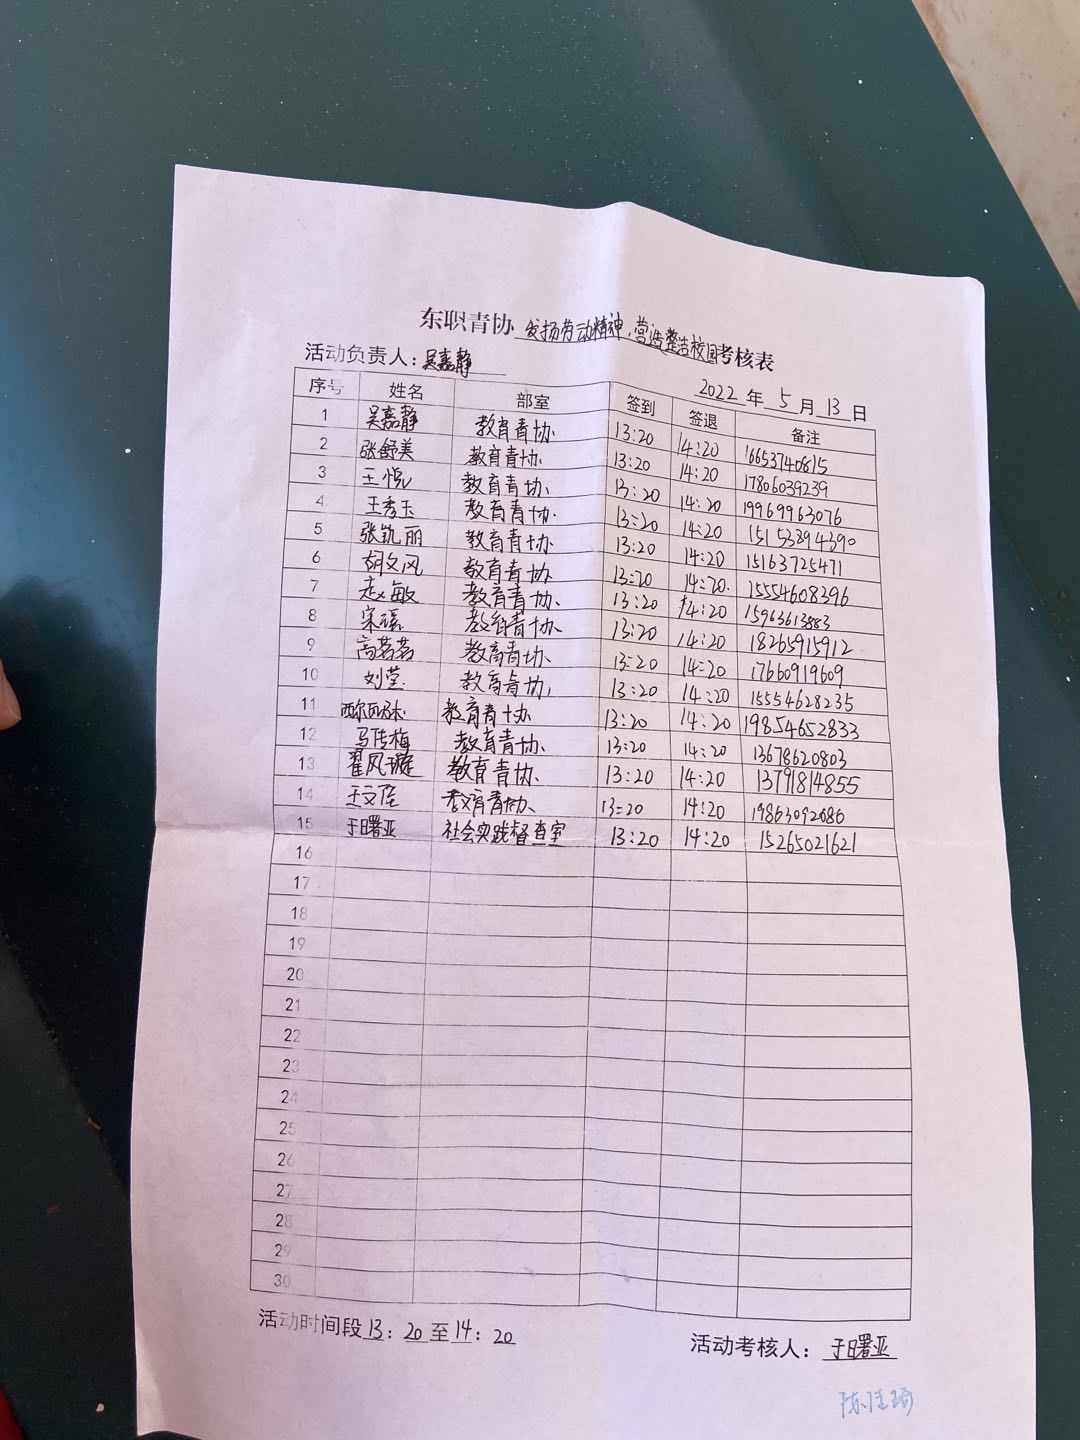 东职青协 发扬劳动精神，营造整洁校园考核表
活动负责人：吴嘉静
2022 年 5 月 13 日
序号 姓名 部室 签到 签退 备注
1 吴嘉静 教育青协 13:20 14:20 16653740815
2 张舒美 教育青协 13:20 14:20 17806039239
3 王悦 教育青协 13:20 14:20 19969963076
4 王秀玉 教育青协 13:20 14:20 15153894390
5 张凯丽 教育青协 13:20 14:20 15163725471
6 胡文风 教育青协 13:20 14:20 15554608396
7 赵敏 教育青协 13:20 14:20 15963613883
8 宋瑶 教育青协 13:20 14:20 18265915912
9 高茗茗 教育青协 13:20 14:20 17660919609
10 刘莹 教育青协 13:20 14:20 15554628235
11 教育青协 13:20 14:20 19854652833
12 马传梅 教育青协 13:20 14:20 13678620803
13 翟风璇 教育青协 13:20 14:20 13791814855
14 王文佳 教育青协 13:20 14:20 19863092686
15 于曙亚 社会实践督查室 13:20 14:20 15265021621
16
17
18
19
20
21
22
23
24
25
26
27
28
29
30
活动时间段 13：20 至 14：20
活动考核人：于曙亚
陈佳琦